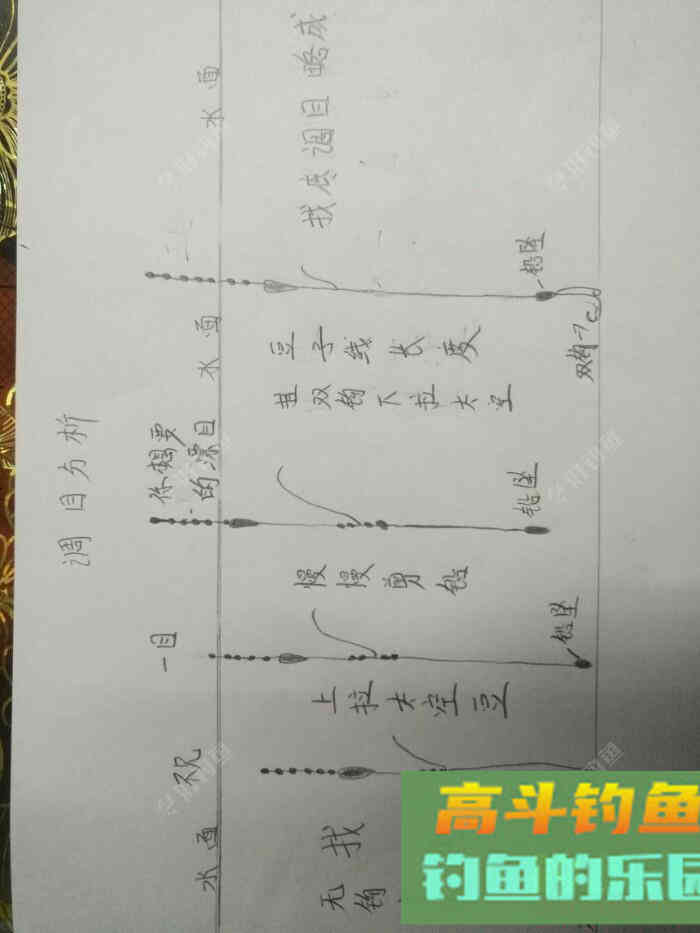 调目分析
不见
一目
你想要
的漂目
水面
水面
水面
无钩
找
上拉太空豆
慢慢剪铅
双钩下拉太空
豆子线长度
找底调目略成
铅坠
铅坠
铅坠
双钩
高斗钓鱼
钓鱼的乐园